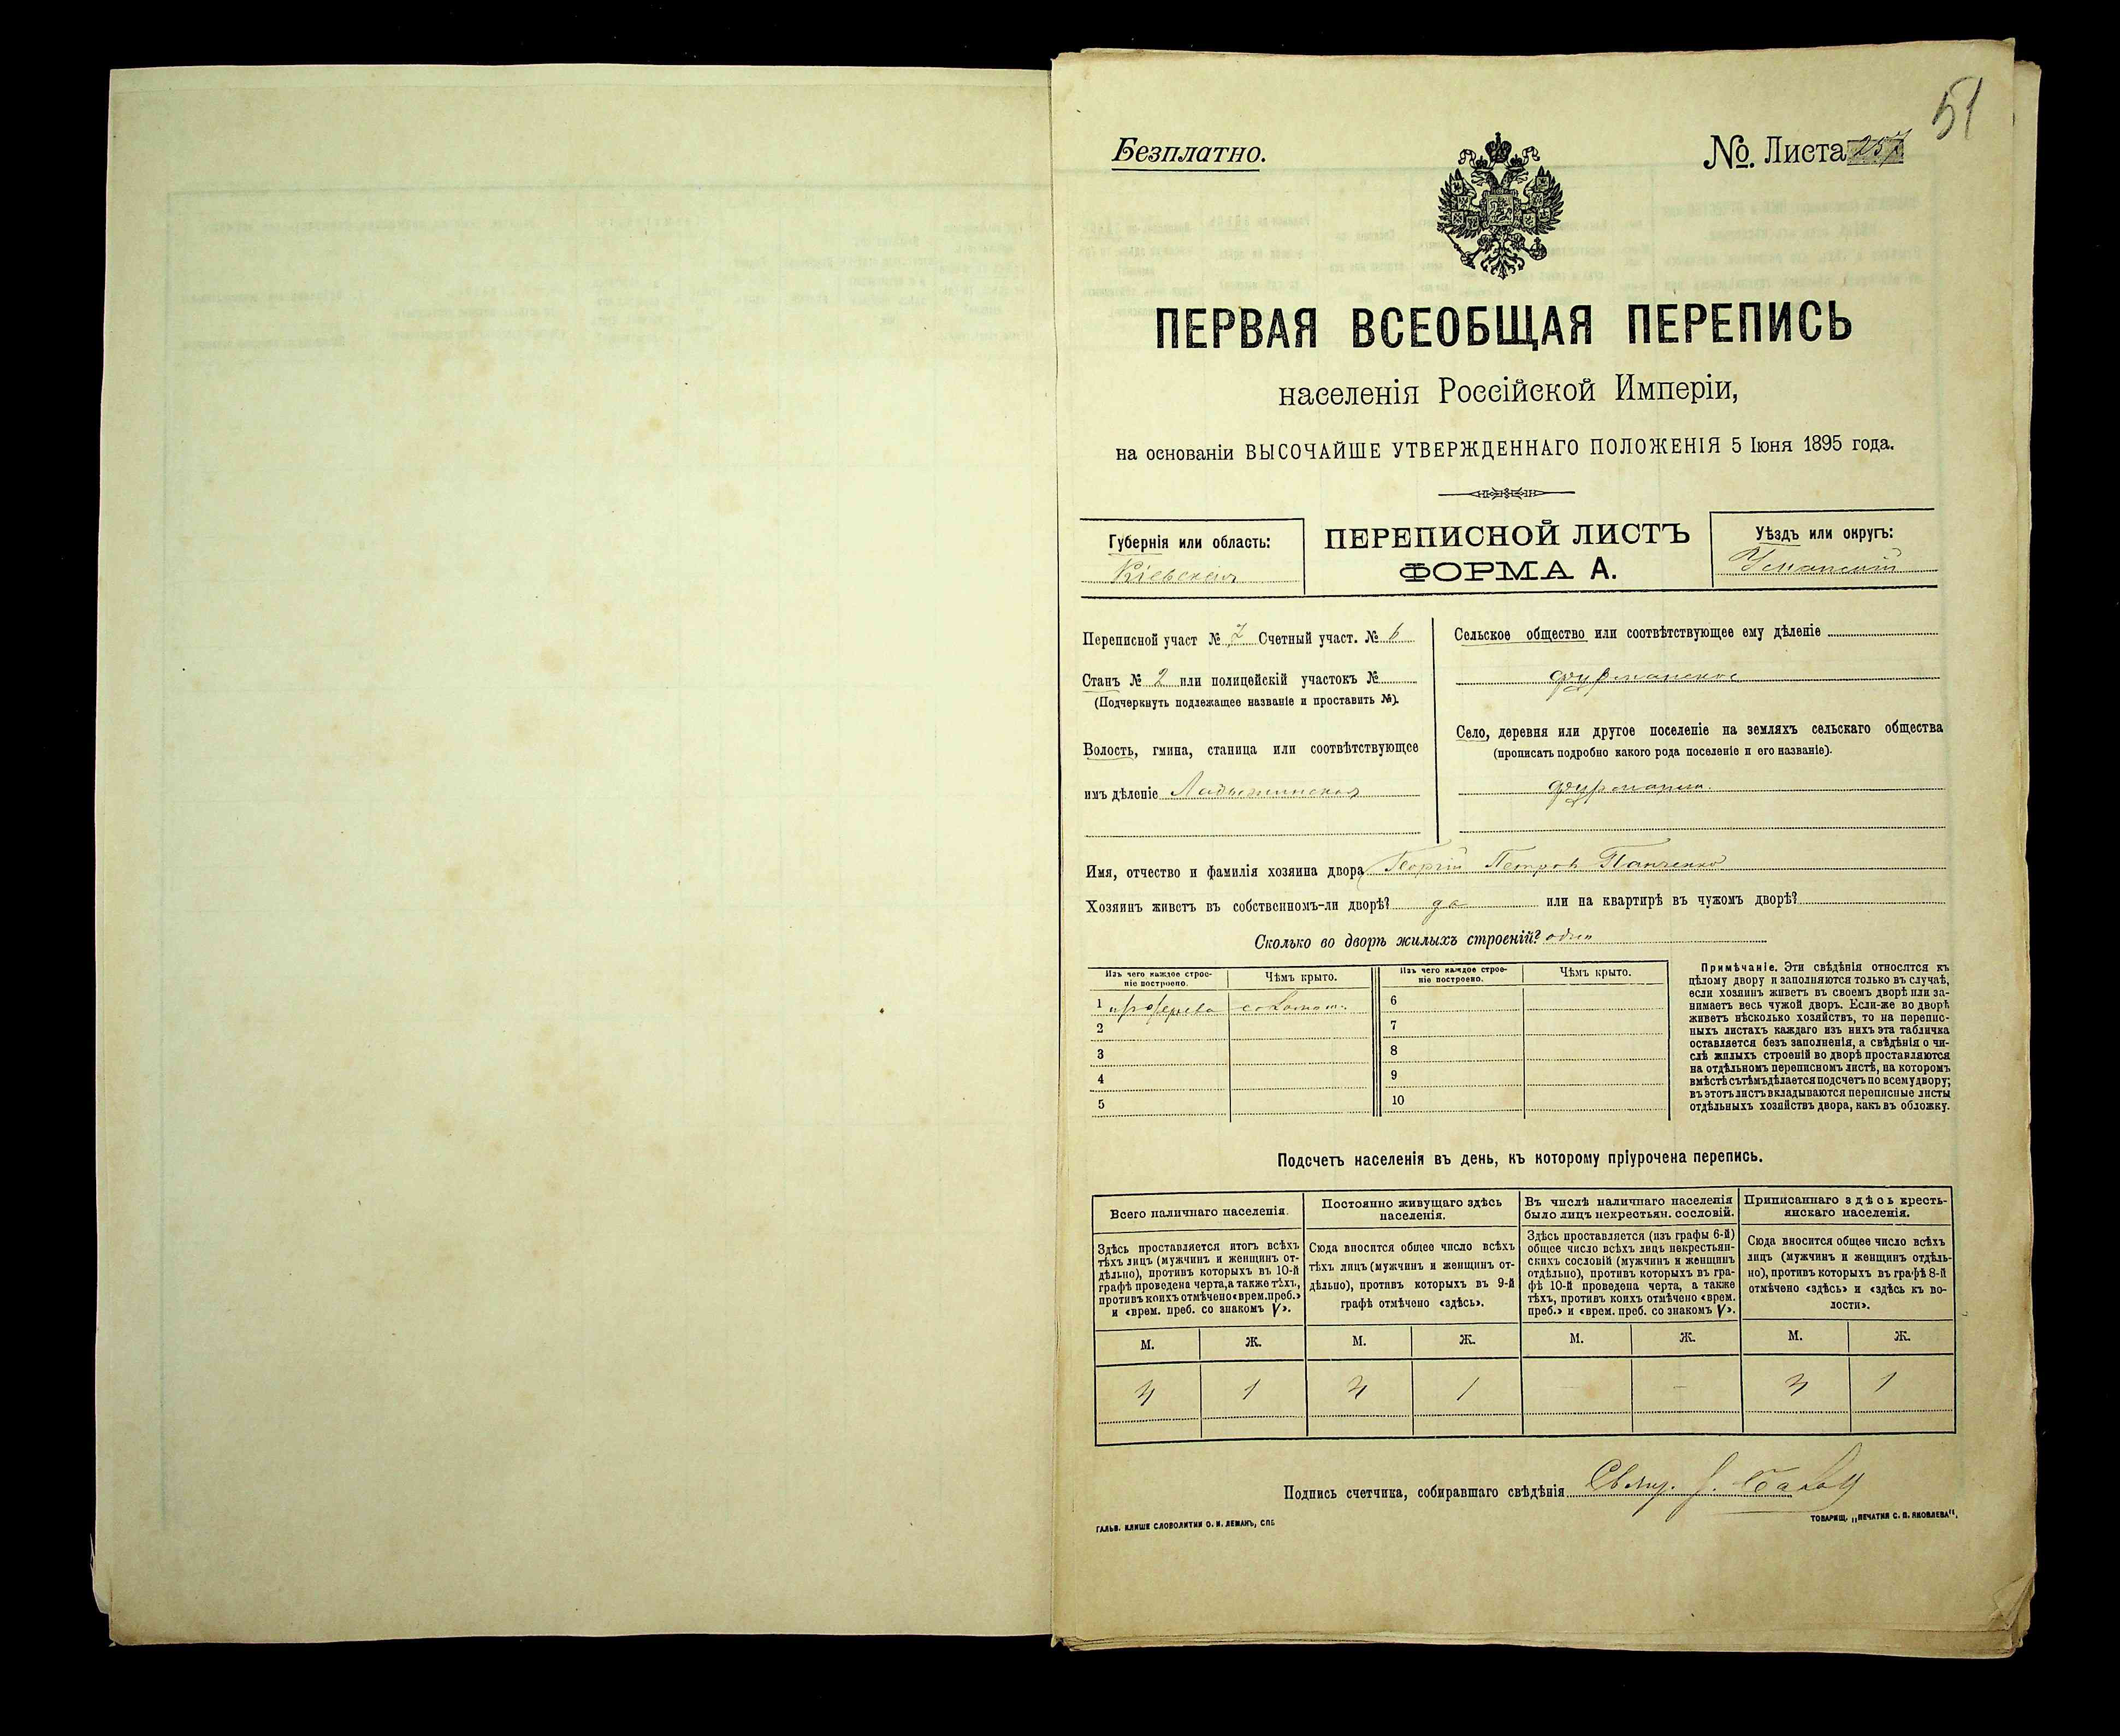 51
Безплатно.
№. Листа 257
ПЕРВАЯ ВСЕОБЩАЯ ПЕРЕПИСЬ
населенія Россійской Имперіи,
на основаніи ВЫСОЧАЙШЕ УТВЕРЖДЕННАГО ПОЛОЖЕНІЯ 5 Іюня 1895 года.
Губернія или область:
Кіевская
ПЕРЕПИСНОЙ ЛИСТЪ
ФОРМА А.
Уѣздъ или округъ:
Уманскій
Переписной участ № 7 Счетный участ. № 6
Станъ № 2 или полицейскій участокъ №
(Подчеркнуть подлежащее названіе и проставить №).
Волость, гмина, станица или соотвѣтствующее
имъ дѣленіе Ладыжинская
Сельское общество или соотвѣтствующее ему дѣленіе
Фурманское
Село, деревня или другое поселеніе на земляхъ сельскаго общества
(прописать подробно какого рода поселеніе и его названіе).
Имя, отчество и фамилія хозяина двора Георгій Петровъ Панченко
Хозяинъ живетъ въ собственномъ-ли дворѣ? да или на квартирѣ въ чужомъ дворѣ?
Сколько во дворѣ жилыхъ строеній? один
Изъ чего каждое строе-
ніе построено.
Чѣмъ крыто.
Изъ чего каждое строе-
ніе построено.
Чѣмъ крыто.
1 соломой
2
3
4
5
6
7
8
9
10
Примѣчаніе. Эти свѣдѣнія относятся къ
цѣлому двору и заполняются только въ случаѣ,
если хозяинъ живетъ въ своемъ дворѣ или за-
нимаетъ весь чужой дворъ. Если-же во дворѣ
живетъ нѣсколько хозяйствъ, то на перепис-
ныхъ листахъ каждаго изъ нихъ эта табличка
оставляется безъ заполненія, а свѣдѣнія о чи-
слѣ жилыхъ строеній во дворѣ проставляются
на отдѣльномъ переписномъ листѣ, на которомъ
вмѣстѣ съ тѣмъ дѣлается подсчетъ по всему двору;
въ этотъ листъ вкладываются переписные листы
отдѣльныхъ хозяйствъ двора, какъ въ обложку.
Подсчетъ населенія въ день, къ которому пріурочена перепись.
Всего наличнаго населенія.
Здѣсь проставляется итогъ всѣхъ
тѣхъ лицъ (мужчинъ и женщинъ от-
дѣльно), противъ которыхъ въ 10-й
графѣ проведена черта, а также тѣхъ,
противъ коихъ отмѣчено «врем. преб.»
и «врем. преб. со знакомъ V».
Постоянно живущаго здѣсь
населенія.
Сюда вносится общее число всѣхъ
тѣхъ лицъ (мужчинъ и женщинъ от-
дѣльно), противъ которыхъ въ 9-й
графѣ отмѣчено «здѣсь».
Въ числѣ наличнаго населенія
было лицъ некрестьян. сословій.
Здѣсь проставляется (изъ графы 6-й)
общее число всѣхъ лицъ некрестьян-
скихъ сословій (мужчинъ и женщинъ
отдѣльно), противъ которыхъ въ гра-
фѣ 10-й проведена черта, а также
тѣхъ, противъ коихъ отмѣчено «врем.
преб.» и «врем. преб. со знакомъ V».
Приписаннаго здѣсь кресть-
янскаго населенія.
Сюда вносится общее число всѣхъ
лицъ (мужчинъ и женщинъ отдѣль-
но), противъ которыхъ въ графѣ 8-й
отмѣчено «здѣсь» и «здѣсь къ во-
лости».
М. Ж. М. Ж. М. Ж. М. Ж.
4 1 4 1 — — 4 1
Подпись счетчика, собиравшаго свѣдѣнія
ГАЛЬВ. КЛИШЕ СЛОВОЛИТНИ О. И. ЛЕМАНЪ, СПБ
ТОВАРИЩ. „ПЕЧАТНЯ С. П. ЯКОВЛЕВА".